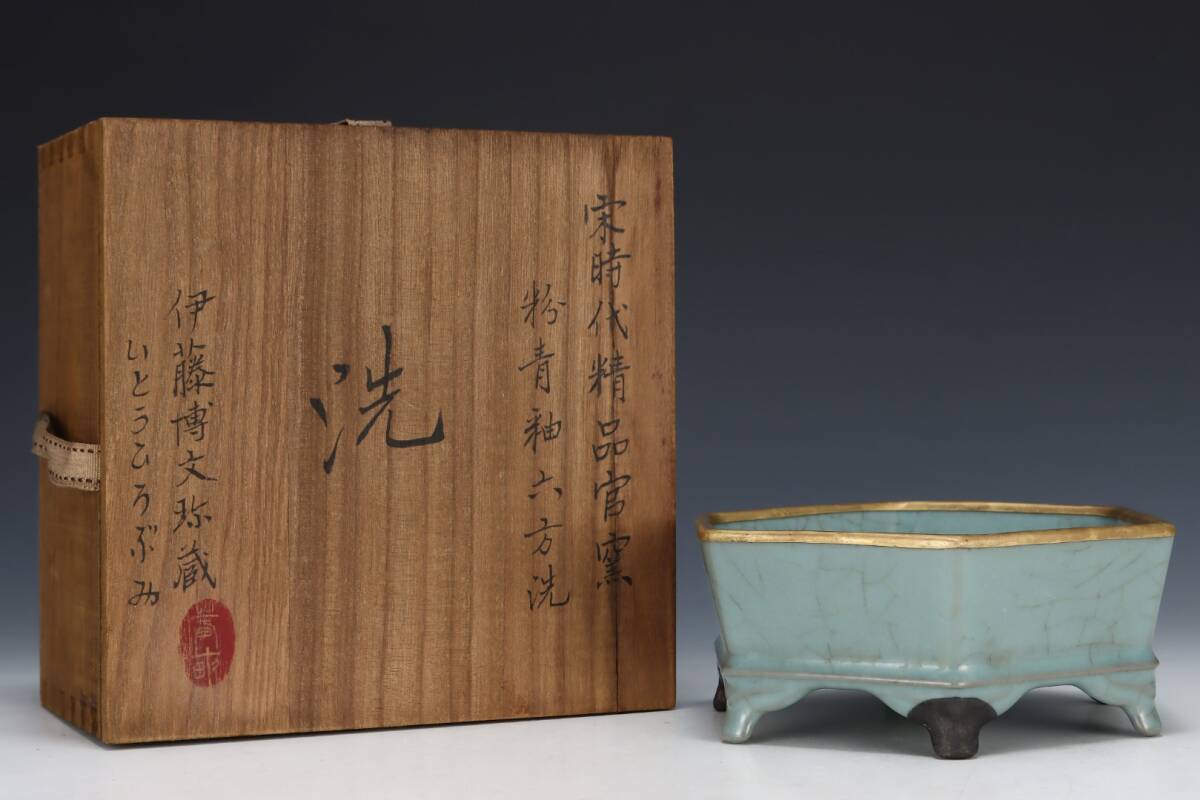 宋時代精品官窯
粉青釉六方洗
洗
伊藤博文珎蔵
いとうひろぶみ